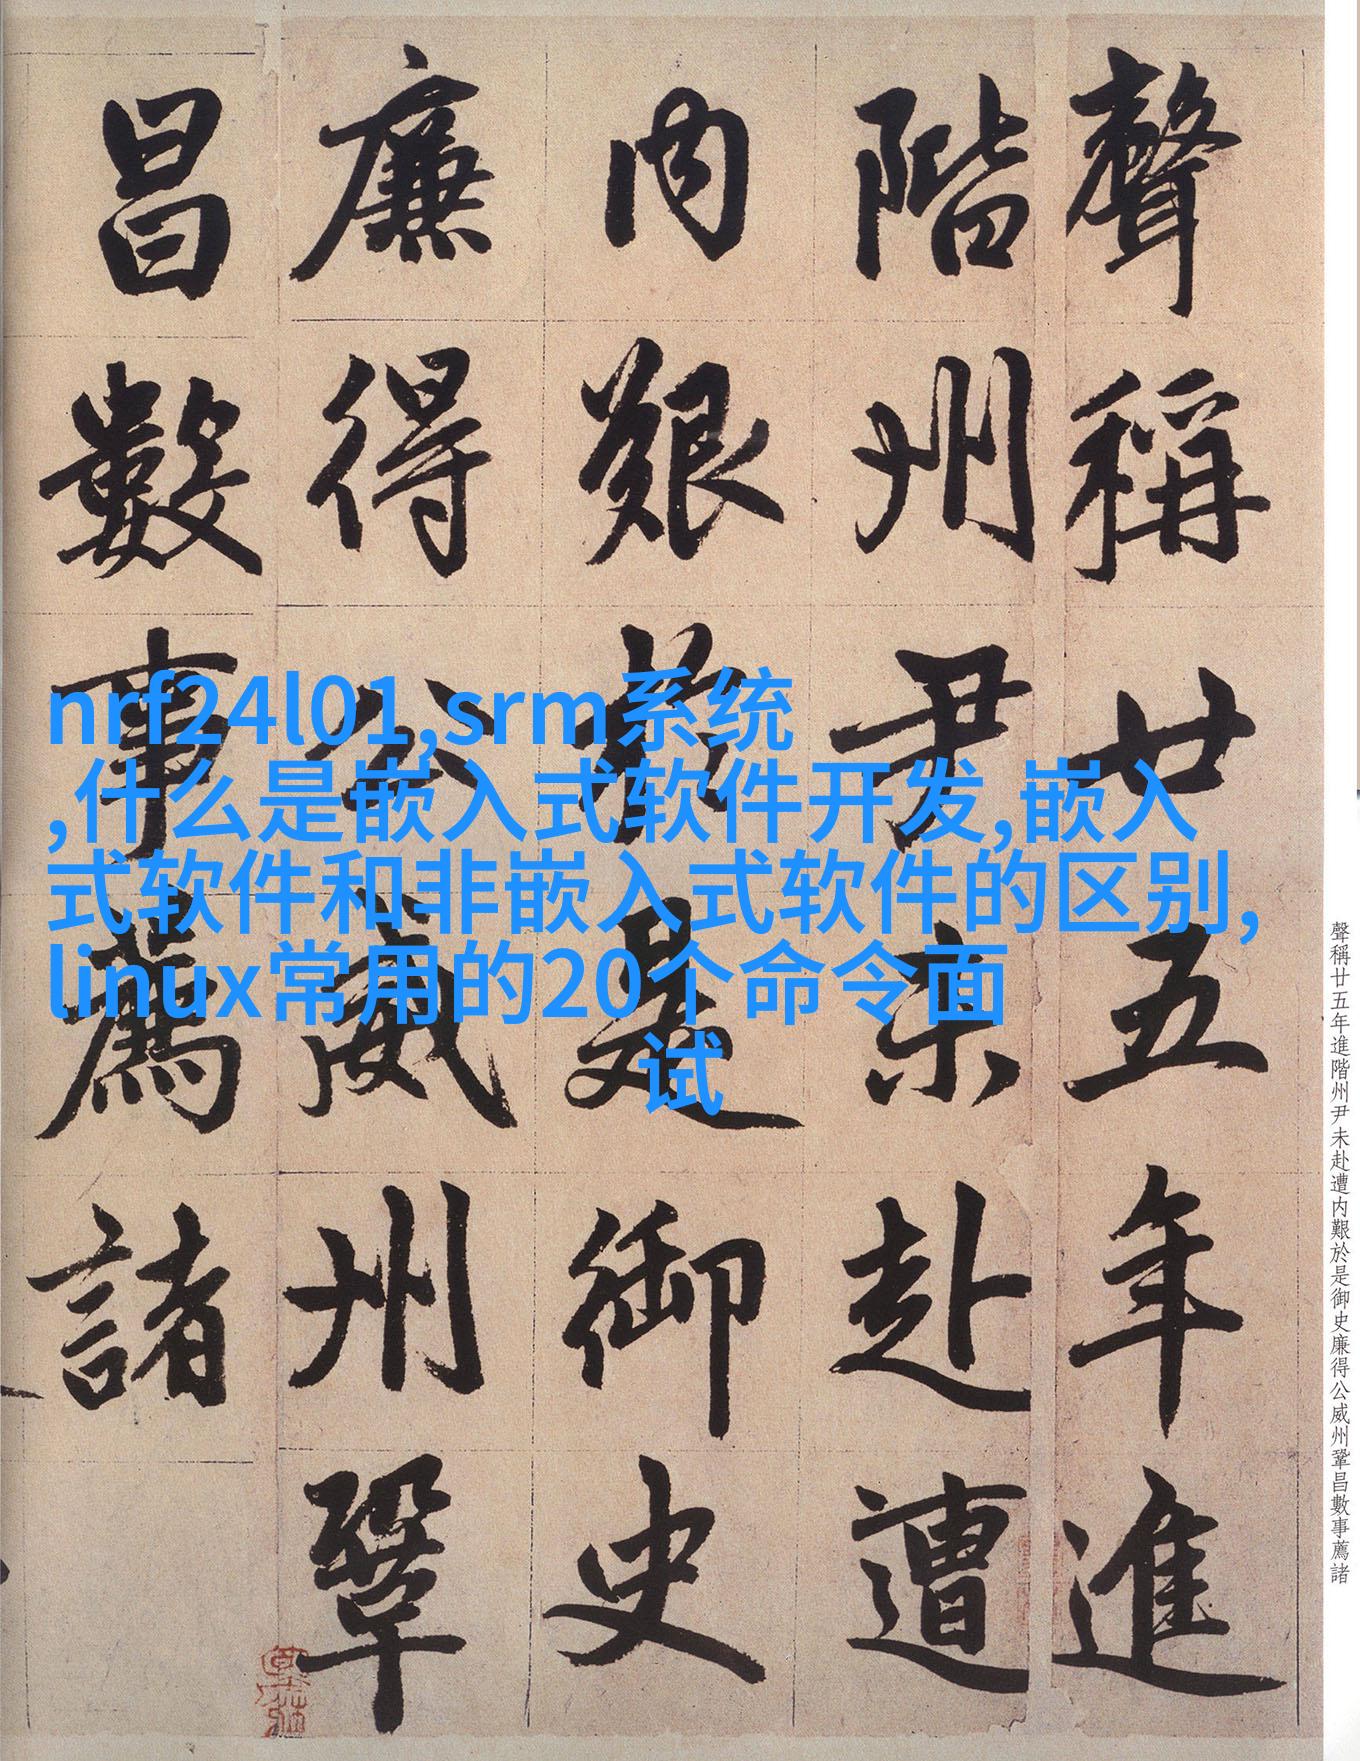 聲稱廿五年進
階州尹未赴遭
内艱於是御史
廉得公威州鞏
昌數事薦諸
nrf24l01,srm系统
,什么是嵌入式软件开发,嵌入
式软件和非嵌入式软件的区别,
linux常用的20个命令面
试
聲稱廿五年進階州尹未赴遭内艱於是御史廉得公威州鞏昌數事薦諸